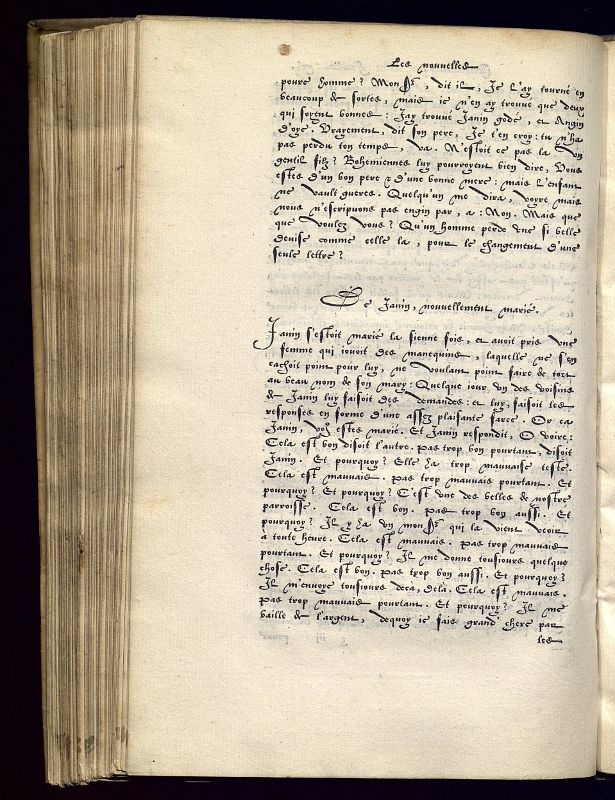 Les nouuelles
poure homme? Mon Sr, dit il, Ie l'ay tourné en
beaucoup de sortes, mais ie n'en ay trouué que deux
qui soyent bonnes: Iay trouué Ianin godé, et Angin
d'oye. Vrayement, dit son pere, Ie t'en croy: tu n'ha
pas perdu ton temps, va. N'estoit ce pas la vn
gentil filz? Bohemiennes luy pourroyent bien dire, Vous
estes d'un bon pere & d'une bonne mere: mais l'enfant
ne vault gueres. Quelqu'un me dira, voyre mais
nous n'escripuons pas engin par, a: Non. Mais que
que voulez vous? Qu'un homme perde vne si belle
deuise comme celle la, pour le changement d'une
seule lettre?
De Ianin, nouuellement marié.
Ianin s'estoit marié la sienne fois, et auoit pris vne
femme qui iouoit des manequins, laquelle ne s'en
cachoit point pour luy, ne voulant point faire de tort
au beau nom de son mary: Quelque iour vn des voisins
de Ianin luy faisoit des demandes: et luy, faisoit les
responses en forme d'une assez plaisante farce. Or ca
Ianin, voz estes marié. Et Ianin respondit, O voire:
Cela est bon disoit l'autre. pas trop bon pourtant, disoit
Ianin. Et pourquoy? Elle ha trop mauuaise teste.
Cela est mauuais. pas trop mauuais pourtant. Et
pourquoy? Et pourquoy? C'est vne des belles de nostre
parroisse. Cela est bon. Pas trop bon aussi. Et
pourquoy? Il y ha vn mon Sr qui la vient veoir
a toute heure. Cela est mauuais. pas trop mauuais
pourtant. Et pourquoy? Il me donne tousiours quelque
chose. Cela est bon. pas trop bon aussi. Et pourquoy?
Il m'enuoye tousiours deca, dela. Cela est mauuais.
Pas trop mauuais pourtant. Et pourquoy? Il me
baille de l'argent, dequoy ie fais grand' chere par
les